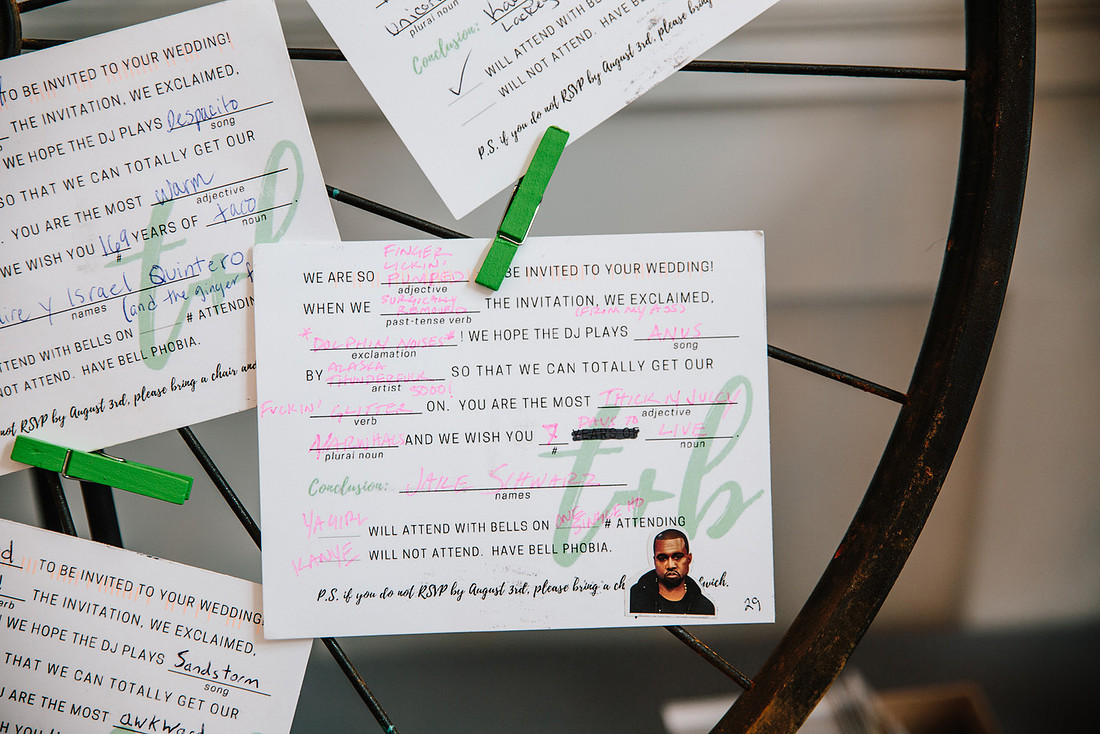 Unicorn
plural noun
Conclusion:
✓ WILL ATTEND WITH BE
WILL NOT ATTEND. HAVE BELL
P.S. if you do not RSVP by August 3rd, please bring
TO BE INVITED TO YOUR WEDDING!
THE INVITATION, WE EXCLAIMED,
WE HOPE THE DJ PLAYS Despacito
song
SO THAT WE CAN TOTALLY GET OUR
. YOU ARE THE MOST warm
adjective
WE WISH YOU 169 YEARS OF taco
# noun
y Israel Quintero
names (and the ginger
ATTEND WITH BELLS ON # ATTENDING
NOT ATTEND. HAVE BELL PHOBIA.
not RSVP by August 3rd, please bring a chair and
t+b
FINGER
LICKIN'
WE ARE SO PUMPED BE INVITED TO YOUR WEDDING!
adjective
SURGICALLY
WHEN WE REMOVED THE INVITATION, WE EXCLAIMED,
past-tense verb (FROM MY ASS)
*DOLPHIN NOISES*! WE HOPE THE DJ PLAYS ANUS
exclamation song
ALASKA
BY THUNDERFUCK SO THAT WE CAN TOTALLY GET OUR
artist 5000!
FUCKIN' GLITTER ON. YOU ARE THE MOST THICK N JUICY
verb adjective
NARWHALS AND WE WISH YOU 7 DAYS TO LIVE.
plural noun # noun
Conclusion: JAKE SCHWARZ
names
YAGIRL WILL ATTEND WITH BELLS ON ONE # ATTENDING
KANYE WILL NOT ATTEND. HAVE BELL PHOBIA.
P.S. if you do not RSVP by August 3rd, please bring a ch wich.
29
t+b
TO BE INVITED TO YOUR WEDDING
THE INVITATION, WE EXCLAIMED,
WE HOPE THE DJ PLAYS Sandstorm
song
THAT WE CAN TOTALLY GET OUR
ARE THE MOST awkward